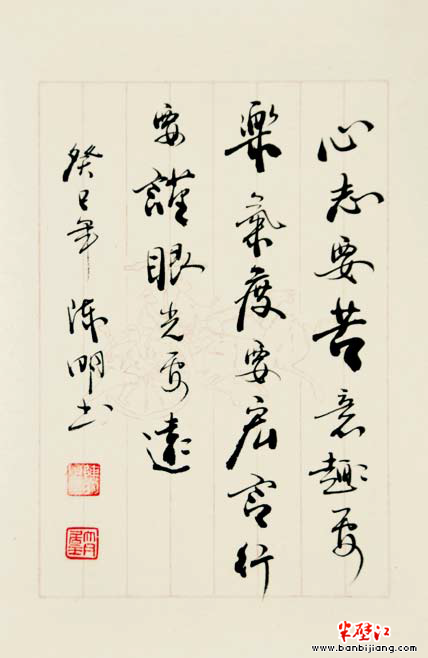 心志要苦意趣要
樂氣度要宏言行
要謹眼光要遠
癸巳年 陈明书
半壁江
www.banbijiang.com